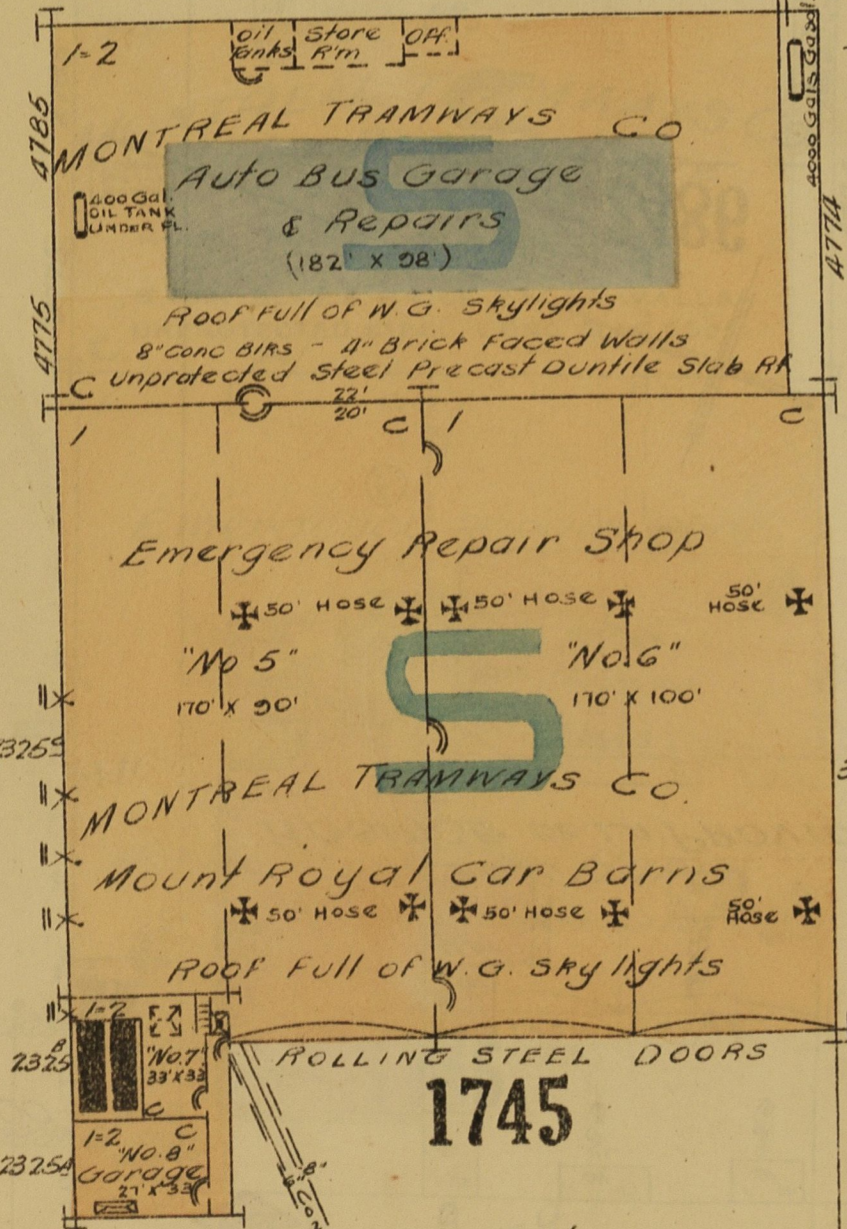 1=2
Oil Tanks
Store R'm
Off.
4000 Gals Gasol
4785
MONTREAL TRAMWAYS CO
S
Auto Bus Garage
& Repairs
(182' X 98')
400 Gal.
OIL TANK
UNDER FL.
4774
4775
Roof Full of W.G. Skylights
8" Conc Blks - 4" Brick Faced Walls
C Unprotected Steel Precast Duntile Slab Rf
22'
20'
1
C
1
C
Emergency Repair Shop
50' HOSE
50' HOSE
50' HOSE
"No 5"
"No. 6"
170' X 90'
170' X 100'
S
MONTREAL TRAMWAYS Co.
Mount Royal Car Barns
50' HOSE
50' HOSE
50' HOSE
Roof Full of W.G. Skylights
1=2
"No. 7"
33' X 33
C
2325B
ROLLING STEEL DOORS
1745
1=2
C
"No. 8"
Garage
27' X 33'
2325A
6"-8"